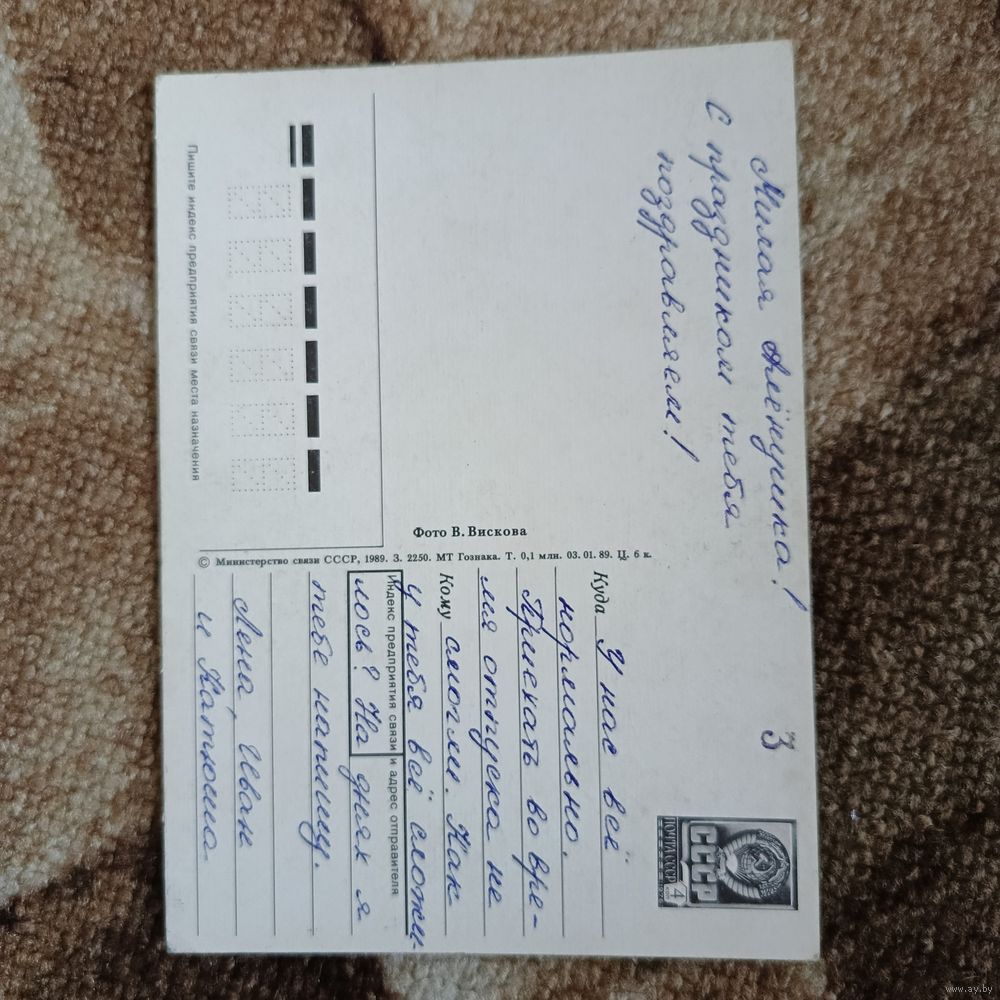 Милая Алёнушка!
С праздником тебя
поздравляем!
3
ПОЧТА СССР
4
СССР
Куда У нас всё
нормально.
Приехать во вре-
мя отпуска не
Кому смогли. Как
Индекс предприятия связи и адрес отправителя
у тебя всё сложи-
лось? На днях я
тебе напишу.
Лена, Иван
и Катюша
Фото В. Вискова
© Министерство связи СССР, 1989. З. 2250. МТ Гознака. Т. 0,1 млн. 03. 01. 89. Ц. 6 к.
Пишите индекс предприятия связи места назначения
www.ay.by